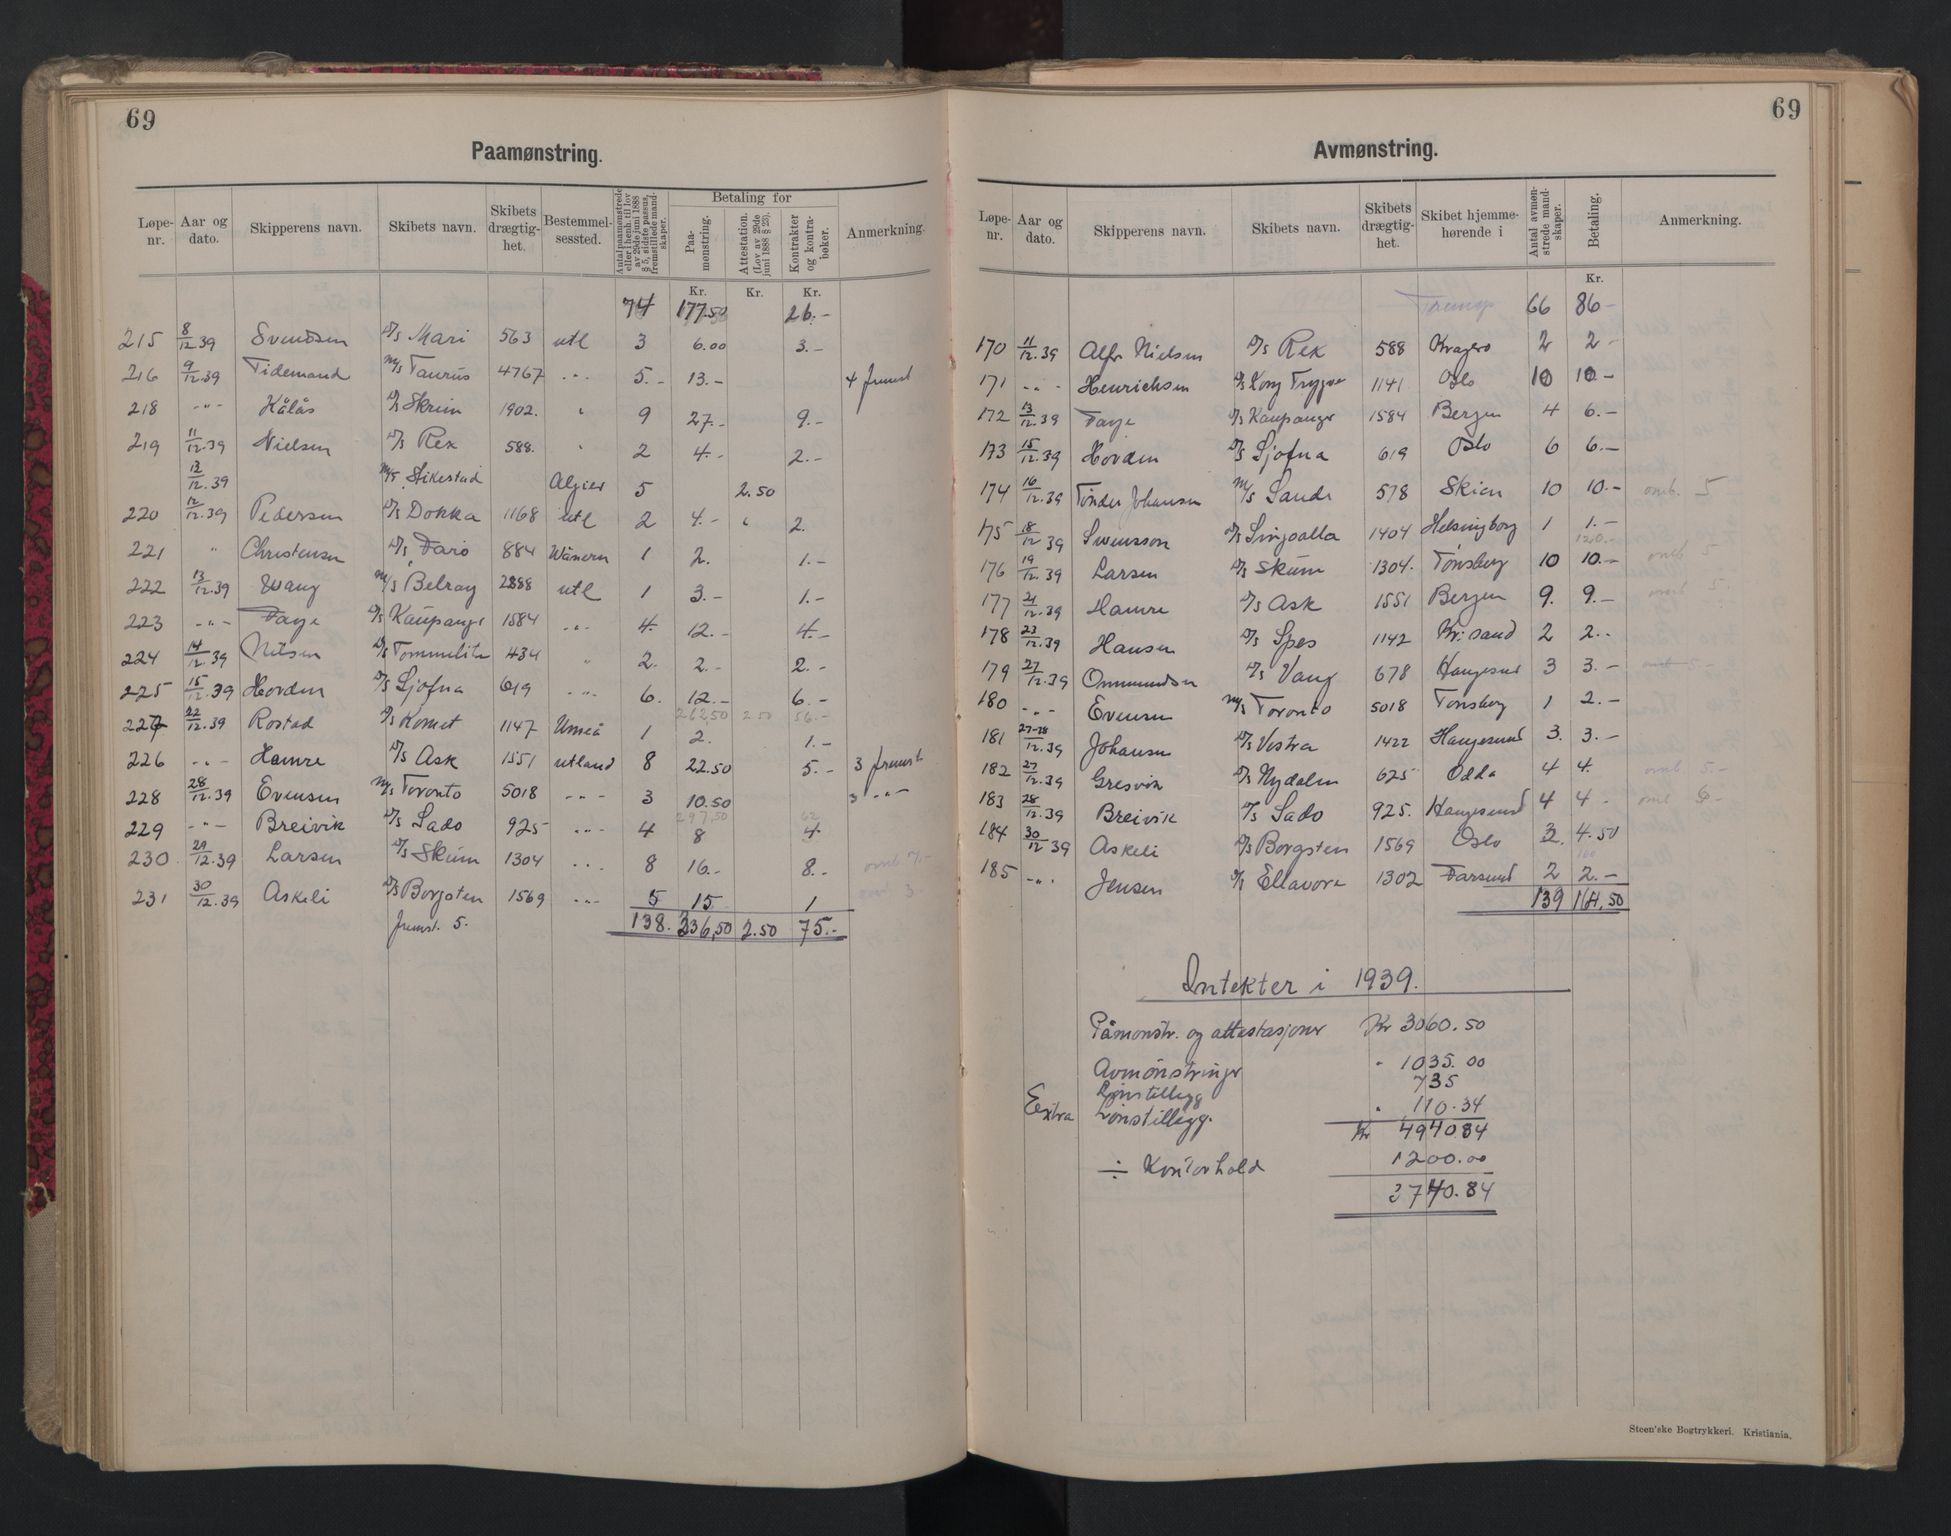 69
Paamønstring.
Løpe-nr. Aar og dato. Skipperens navn. Skibets navn. Skibets drægtig-het. Bestemmel-sessted. Antal paamønstrede eller i henh. til lov av 29de juni 1888 § 5, sidste passus, fremstillede mand-skaper. Betaling for Paa-mønstring. Attestation. (Lov av 29de juni 1888 § 23). Kontrakter og kontra-bøker. Anmerkning.
Kr. Kr. Kr.
74 177.50 26.-
215 8/12.39 Svendsen D/S Mari 563 utl 3 6.00 3.-
216 9/12.39 Tidemand M/S Taurus 4767 -"- 5.- 13.- 4 fremst
218 -"- Kålås D/S Skrim 1902. " 9 27.- 9.-
219 11/12.39 Nielsen D/S Rex 588. " 2 4.- 2.-
12/12.39 M/T Stikestad Algier 5 2.50
220 12/12.39 Pedersen D/S Dokka 1168 utl 2 4.- 2.
221 " Christensen D/S Farø 884 Wänern 1 2. 1.-
222 13/12.39 Wang M/S Belray 2888 utl 1 3.- 1.-
223 -"- Faye D/S Kaupanger 1584 -"- 4. 12.- 4.-
224 14/12.39 Nilsen D/S Tommeliten 434 " 2. 2.- 2.-
225 15/12.39 Hovden D/S Sjofna 619 -"- 6. 12.- 6.-
262.50 2.50 56.-
227 22/12.39 Rostad D/S Komet 1147 Umeå 1 2. 1.-
226 -"- Hamre D/S Ask 1551 utland 8 22.50 5.- 3 fremst
228 28/12.39 Evensen M/S Toronto 5018 -"- 3 10.50 3 -"-
297.50 62
229 -"- Breivik D/S Sado 925 -"- 4 8 4
230 29/12.39 Larsen D/S Skum 1304 -"- 8 16.- 8.-
231 30/12.39 Askeli D/S Borgsten 1569 -"- 5 15 1
fremst. 5. 138. 336,50 2.50 75.-
69
Avmønstring.
Løpe-nr. Aar og dato. Skipperens navn. Skibets navn. Skibets drægtig-het. Skibet hjemme-hørende i Antal avmøn-strede mand-skaper. Betaling. Anmerkning.
Kr.
Transp 66 86-
170 11/12.39 Alfr Nielsen D/S Rex 588 Kragerø 2 2-
171 -"- Henrichsen D/S Kong Trygve 1141 Oslo 10 10.-
172 13/12.39 Faye D/S Kaupanger 1584 Bergen 4 6.-
173 15/12.39 Hovden D/S Sjofna 619 Oslo 6 6.-
174 16/12.39 Tønder Johansen M/S Sands 578 Skien 10 10.- omb. 5
175 18/12 39 Swensson D/S Singoalla 1404 Helsingborg 1 1.-
120.-
176 19/12.39 Larsen D/S Skum 1304. Tønsberg 10 10.- omb 5
177 21/12.39 Hamre D/S Ask 1551 Bergen 9. 9.- omb 5
178 23/12.39 Hansen D/S Spes 1142 Kr.sand 2 2.-
179 27/12.39 Ommundsen D/S Vang 678 Haugesund 3 3.- omb 5-
180 -"- Evensen M/S Toronto 5018 Tønsberg 1 2.-
181 27-28/12.39 Johansen D/S Vestra 1422 Haugesund 3. 3.-
182 27/12.39 Gresvik D/S Nydalen 625 Odda 4 4. omb 5.-
183 28/12.39 Breivik D/S Sado 925. Haugesund 4 4 - omb 6-
184 30/12 39 Askeli D/S Borgsten 1569 Oslo 3. 4.50
160
185 -"- Jensen D/S Ellavore 1302 Farsund 2 2.-
139 164,50
Inntekter i 1939.
Påmønstr. og attestasjoner Kr 3060.50
Avmønstringer " 1035.00
Lønstillegg 735
Extra Lønstillegg. " 110.34
Kr 4940.84
÷ Kontorhold 1200.00
3740.84
Steen'ske Bogtrykkeri. Kristiania.